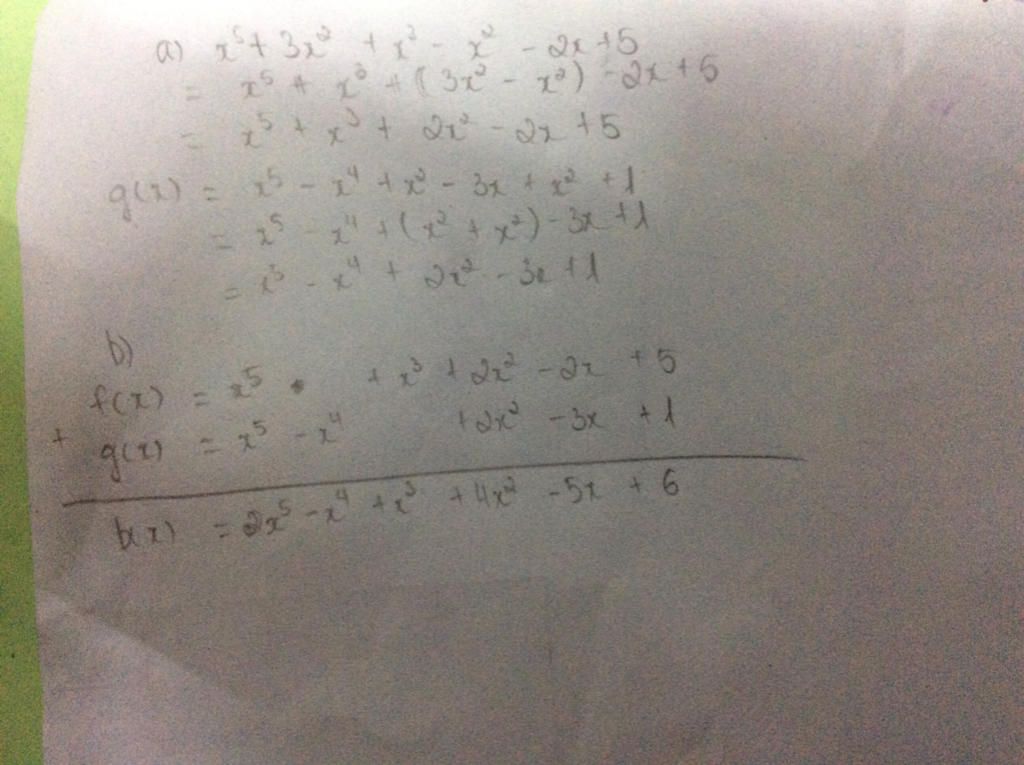 a) x⁵ + 3x² + x³ - x² - 2x + 5
= x⁵ + x³ + (3x² - x²) - 2x + 5
= x⁵ + x³ + 2x² - 2x + 5
g(x) = x⁵ - x⁴ + x² - 3x + x² + 1
= x⁵ - x⁴ + (x² + x²) - 3x + 1
= x⁵ - x⁴ + 2x² - 3x + 1
b)
f(x) = x⁵ + x³ + 2x² - 2x + 5
+ g(x) = x⁵ - x⁴ + 2x² - 3x + 1
h(x) = 2x⁵ - x⁴ + x³ + 4x² - 5x + 6